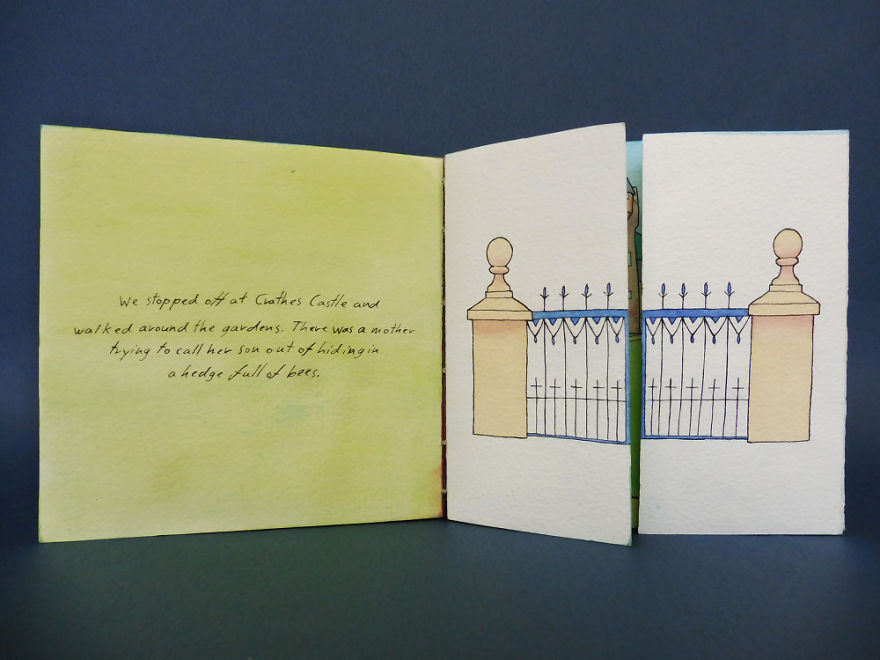 We stopped off at Crathes Castle and
walked around the gardens. There was a mother
trying to call her son out of hiding in
a hedge full of bees.